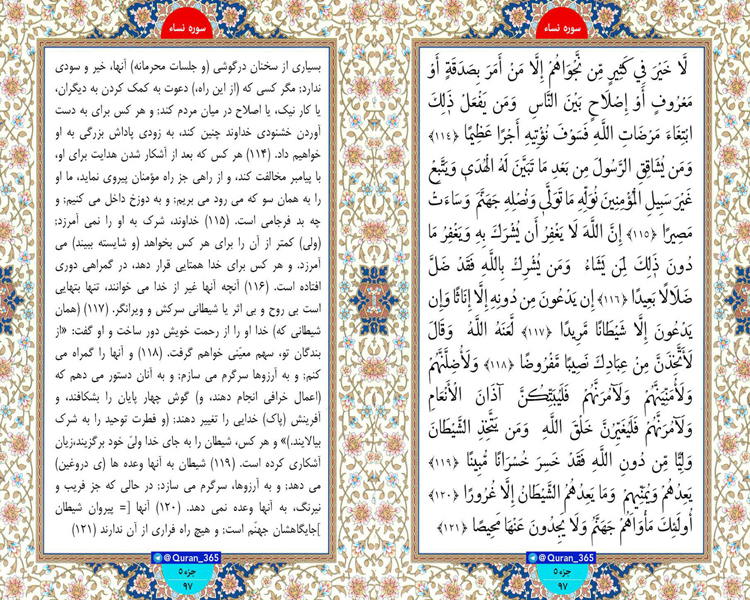 سوره نساء
لَّا خَيْرَ فِي كَثِيرٍ مِّن نَّجْوَاهُمْ إِلَّا مَنْ أَمَرَ بِصَدَقَةٍ أَوْ
مَعْرُوفٍ أَوْ إِصْلَاحٍ بَيْنَ النَّاسِ وَمَن يَفْعَلْ ذَٰلِكَ
ابْتِغَاءَ مَرْضَاتِ اللَّهِ فَسَوْفَ نُؤْتِيهِ أَجْرًا عَظِيمًا ﴿١١٤﴾
وَمَن يُشَاقِقِ الرَّسُولَ مِن بَعْدِ مَا تَبَيَّنَ لَهُ الْهُدَىٰ وَيَتَّبِعْ
غَيْرَ سَبِيلِ الْمُؤْمِنِينَ نُوَلِّهِ مَا تَوَلَّىٰ وَنُصْلِهِ جَهَنَّمَ وَسَاءَتْ
مَصِيرًا ﴿١١٥﴾ إِنَّ اللَّهَ لَا يَغْفِرُ أَن يُشْرَكَ بِهِ وَيَغْفِرُ مَا
دُونَ ذَٰلِكَ لِمَن يَشَاءُ وَمَن يُشْرِكْ بِاللَّهِ فَقَدْ ضَلَّ
ضَلَالًا بَعِيدًا ﴿١١٦﴾ إِن يَدْعُونَ مِن دُونِهِ إِلَّا إِنَاثًا وَإِن
يَدْعُونَ إِلَّا شَيْطَانًا مَّرِيدًا ﴿١١٧﴾ لَّعَنَهُ اللَّهُ وَقَالَ
لَأَتَّخِذَنَّ مِنْ عِبَادِكَ نَصِيبًا مَّفْرُوضًا ﴿١١٨﴾ وَلَأُضِلَّنَّهُمْ
وَلَأُمَنِّيَنَّهُمْ وَلَآمُرَنَّهُمْ فَلَيُبَتِّكُنَّ آذَانَ الْأَنْعَامِ
وَلَآمُرَنَّهُمْ فَلَيُغَيِّرُنَّ خَلْقَ اللَّهِ وَمَن يَتَّخِذِ الشَّيْطَانَ
وَلِيًّا مِّن دُونِ اللَّهِ فَقَدْ خَسِرَ خُسْرَانًا مُّبِينًا ﴿١١٩﴾
يَعِدُهُمْ وَيُمَنِّيهِمْ وَمَا يَعِدُهُمُ الشَّيْطَانُ إِلَّا غُرُورًا ﴿١٢٠﴾
أُولَٰئِكَ مَأْوَاهُمْ جَهَنَّمُ وَلَا يَجِدُونَ عَنْهَا مَحِيصًا ﴿١٢١﴾
@Quran_365
جزء ۵
۹۷
سوره نساء
بسیاری از سخنان درگوشی (و جلسات محرمانه) آنها، خیر و سودی
ندارد؛ مگر کسی که (از این راه،) دعوت به کمک کردن به دیگران،
یا کار نیک، یا اصلاح در میان مردم کند؛ و هر کس برای به دست
آوردن خشنودی خداوند چنین کند، به زودی پاداش بزرگی به او
خواهیم داد. (۱۱۴) هر کس که بعد از آشکار شدن هدایت برای او،
با پیامبر مخالفت کند، و از راهی جز راه مؤمنان پیروی نماید، ما او
را به همان سو که می رود می بریم؛ و به دوزخ داخل می کنیم؛ و
چه بد فرجامی است. (۱۱۵) خداوند، شرک به او را نمی آمرزد؛
(ولی) کمتر از آن را برای هر کس بخواهد (و شایسته ببیند) می
آمرزد. و هر کس برای خدا همتایی قرار دهد، در گمراهی دوری
افتاده است. (۱۱۶) آنچه آنها غیر از خدا می خوانند، تنها بتهایی
است بی روح و بی اثر یا شیطانی سرکش و ویرانگر. (۱۱۷) (همان
شیطانی که) خدا او را از رحمت خویش دور ساخت و او گفت: «از
بندگان تو، سهم معیّنی خواهم گرفت. (۱۱۸) و آنها را گمراه می
کنم؛ و به آرزوها سرگرم می سازم؛ و به آنان دستور می دهم که
(اعمال خرافی انجام دهند، و) گوش چهار پایان را بشکافند، و
آفرینش (پاک) خدایی را تغییر دهند؛ (و فطرت توحید را به شرک
بیالایند.)» و هر کس، شیطان را به جای خدا ولیّ خود برگزیند،زیان
آشکاری کرده است. (۱۱۹) شیطان به آنها وعده ها (ی دروغین)
می دهد؛ و به آرزوها، سرگرم می سازد؛ در حالی که جز فریب و
نیرنگ، به آنها وعده نمی دهد. (۱۲۰) آنها [= پیروان شیطان
]جایگاهشان جهنّم است؛ و هیچ راه فراری از آن ندارند (۱۲۱)
@Quran_365
جزء ۵
۹۷